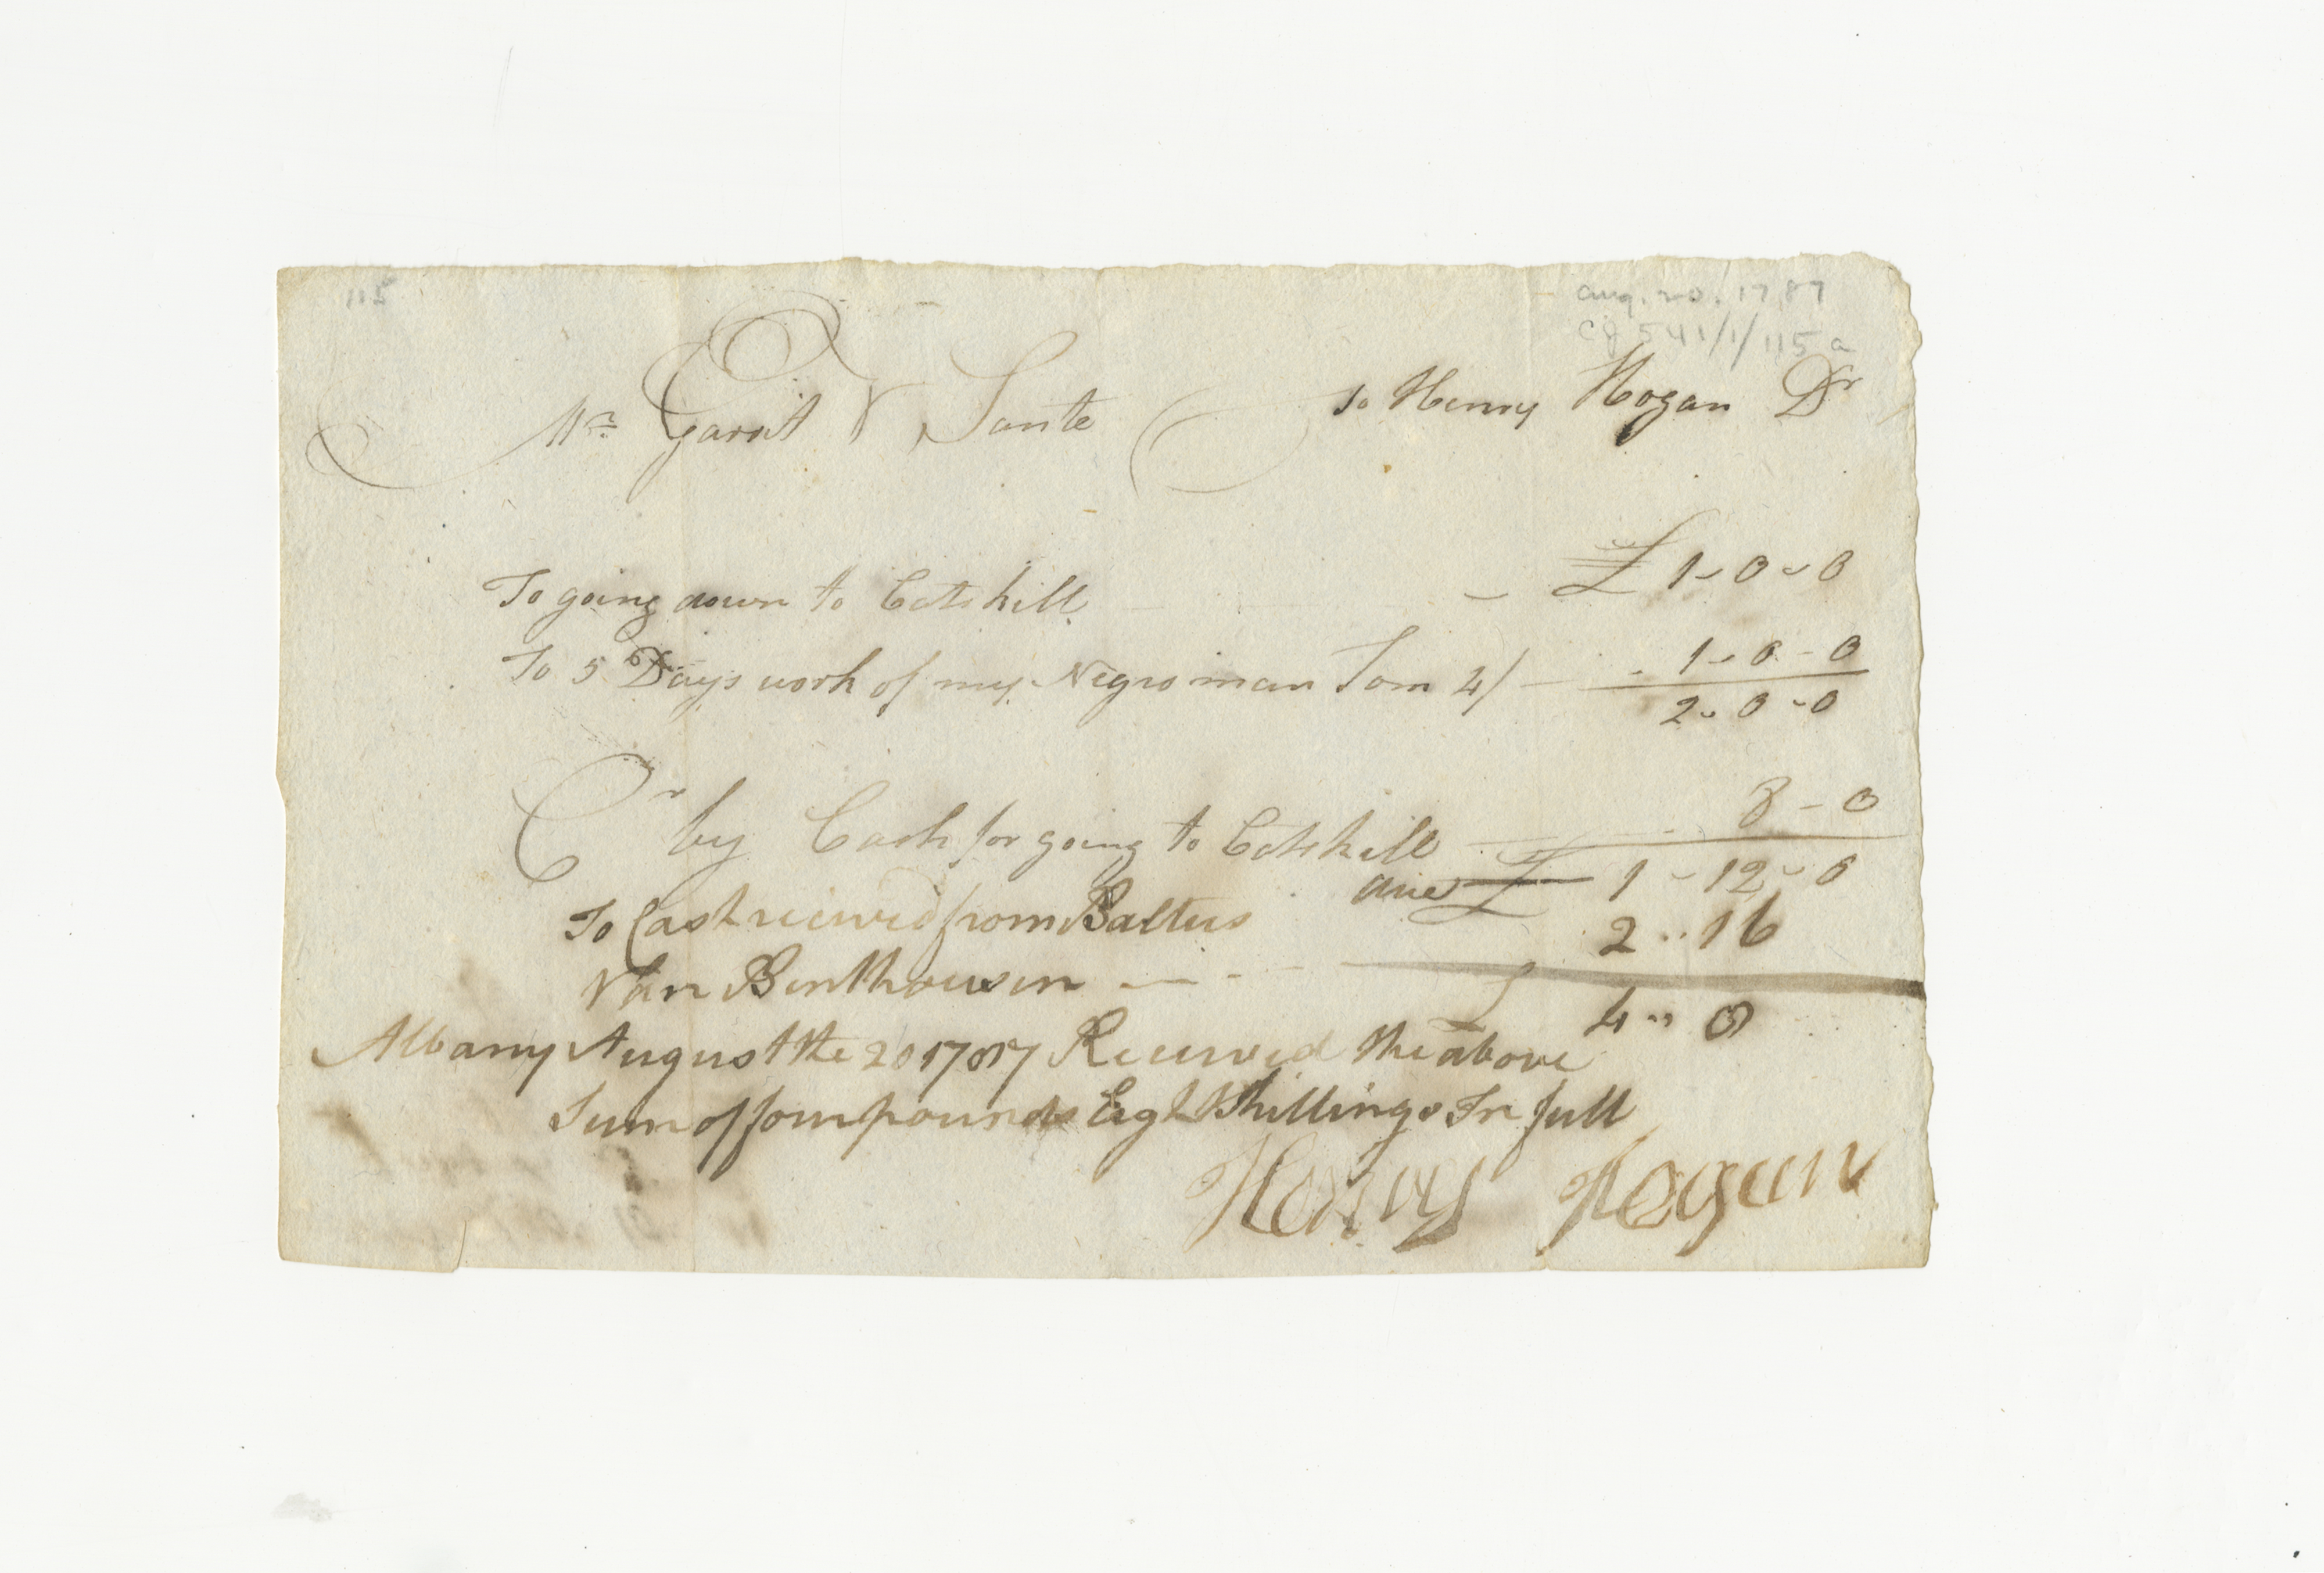 115
Aug. 20. 1787
CJ 541/1/115a
Mr. Garrit V Sante To Henry Hogan Dr
To going down to Catskill - £ 1-0-0
To 5 Days work of my Negro man Tom 4/ - 1-0-0
2-0-0
Cr by Cash for going to Catskill 8-0
due £ 1-12-0
To Cash received from Baltus 2..16
Van Benthousen — - £ 4..8
Albany August the 20 1787 Received the above
Sum of four pounds Eight Shillings In full
Henry Hogan